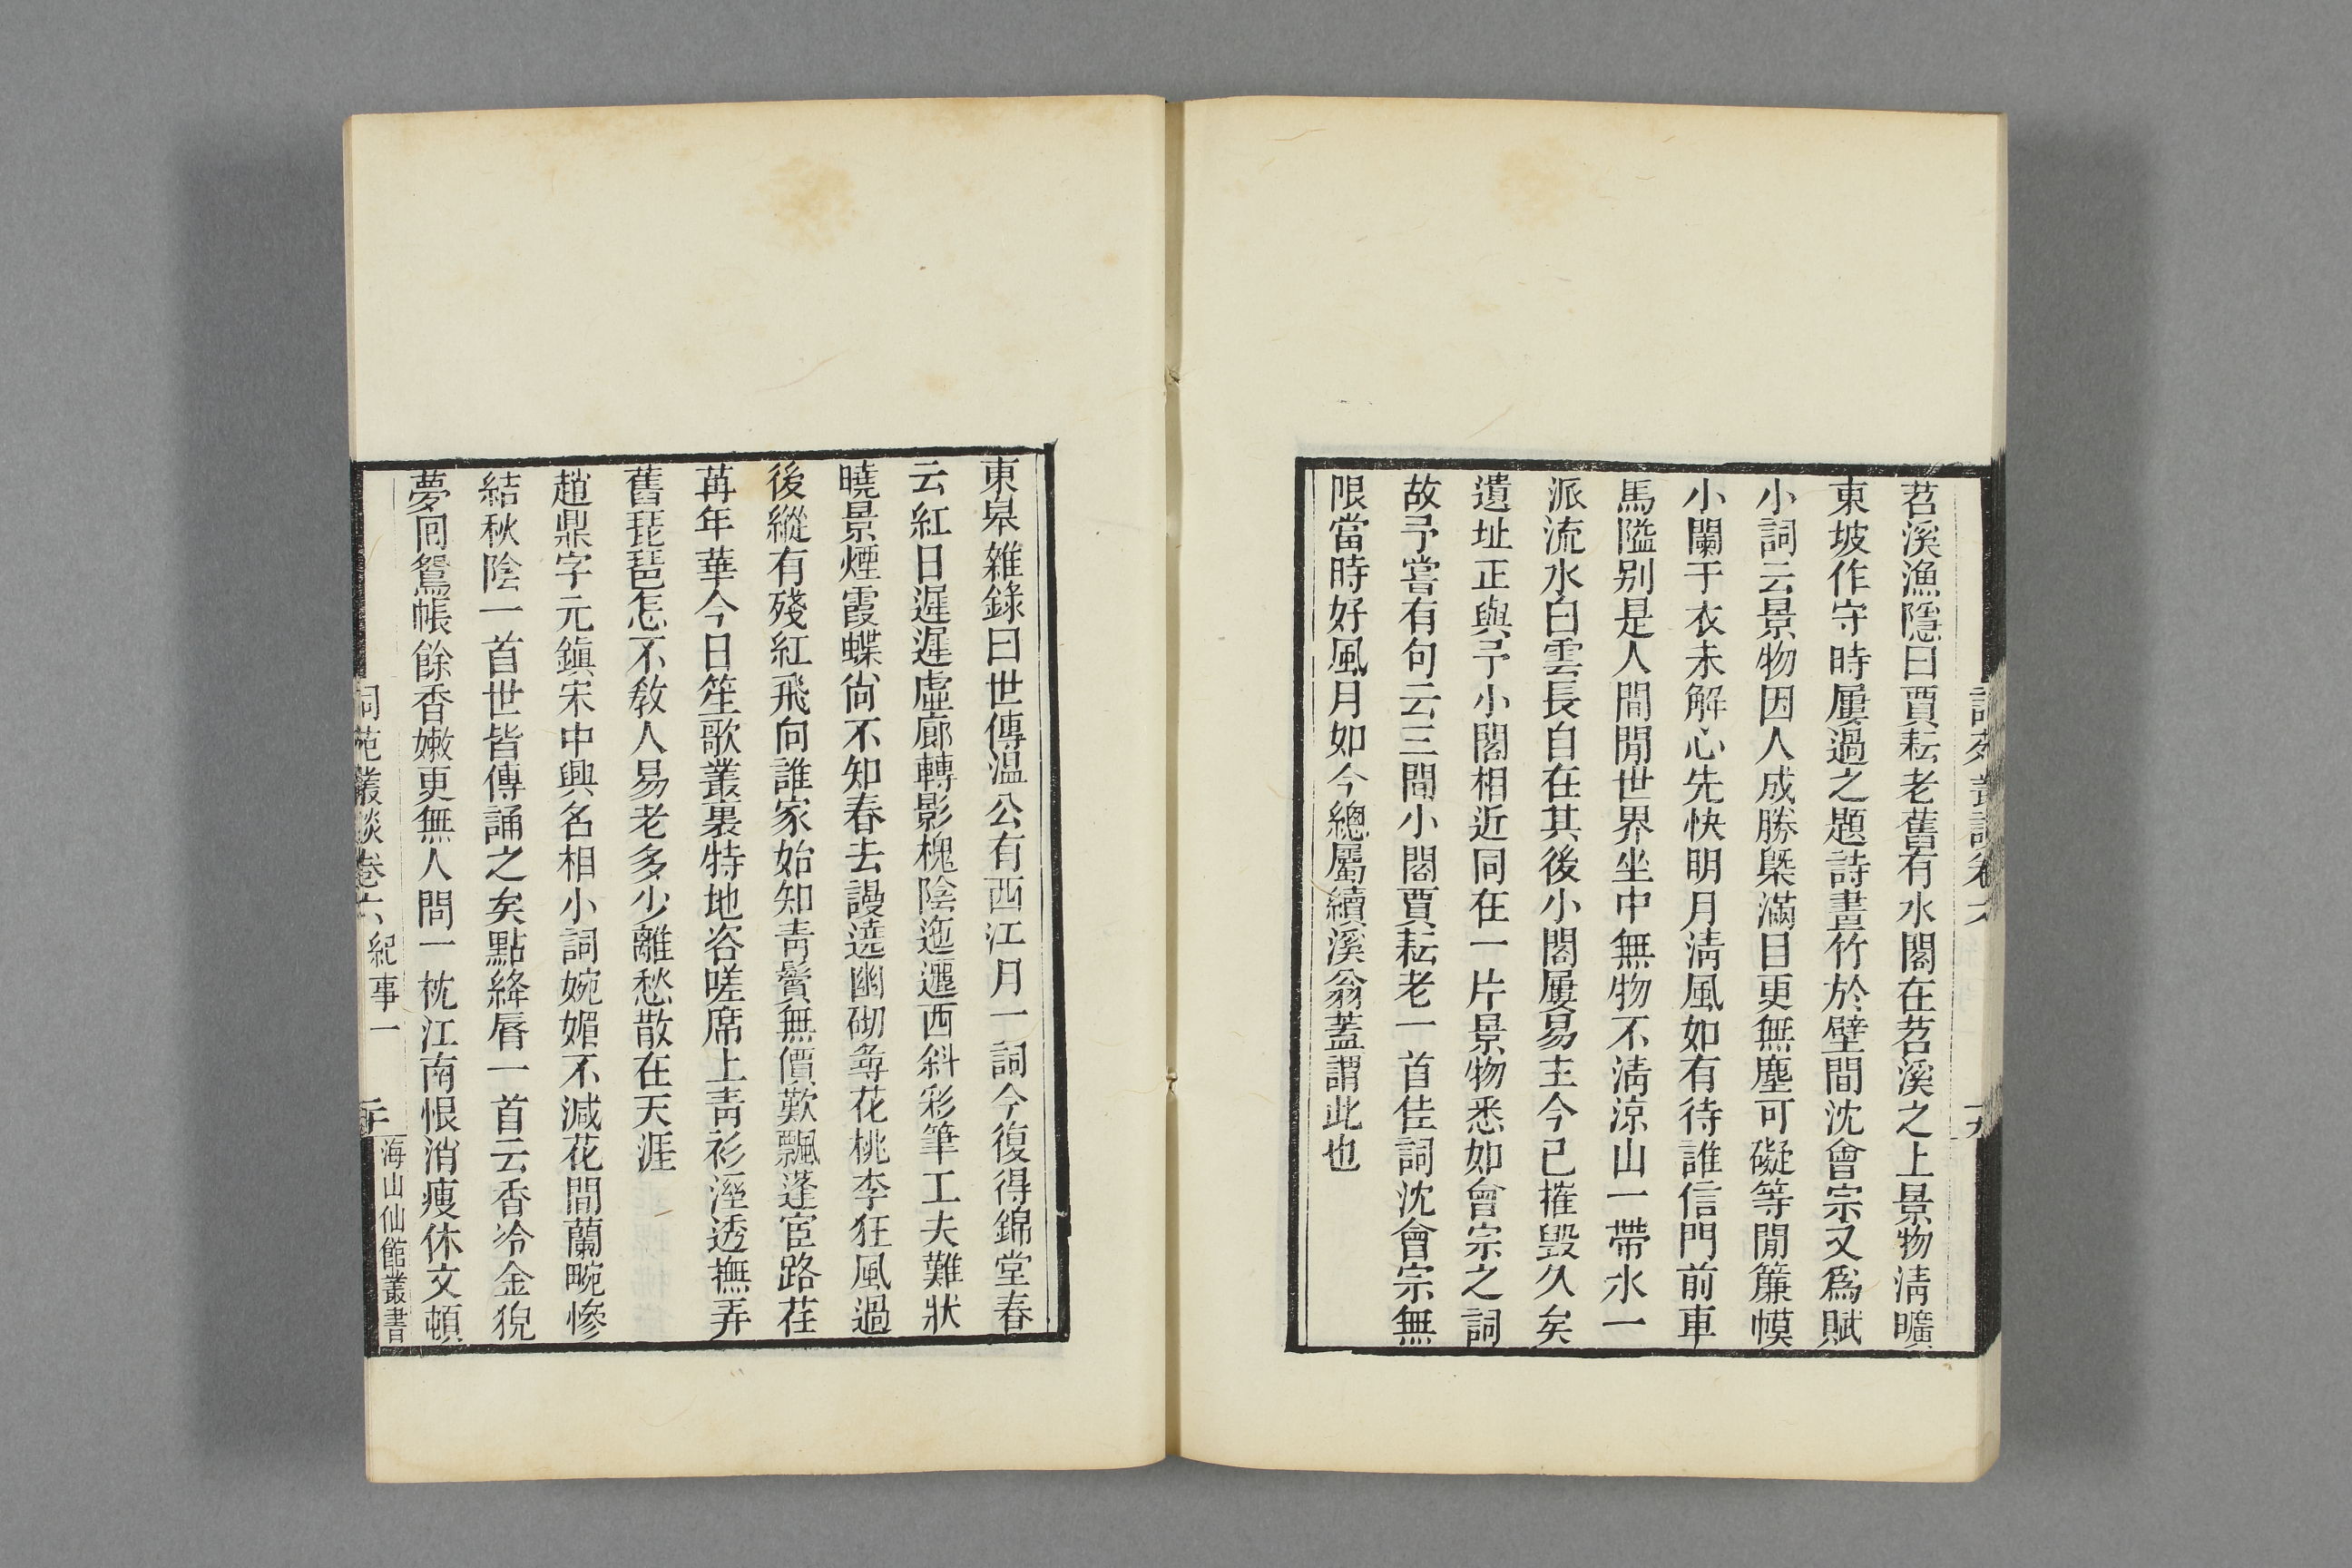 苕溪漁隱曰賈耘老舊有水閣在苕溪之上景物淸曠
東坡作守時屢過之題詩畫竹於壁間沈會宗又爲賦
小詞云景物因人成勝槩滿目更無塵可礙等閒簾幙
小闌干衣未解心先快明月淸風如有待誰信門前車
馬隘别是人間閒世界坐中無物不淸涼山一帶水一
派流水白雲長自在其後小閣屢易主今已摧毀久矣
遺址正與予小閣相近同在一片景物悉如會宗之詞
故予嘗有句云三間小閣賈耘老一首佳詞沈會宗無
限當時好風月如今總屬續溪翁蓋謂此也
東臯雜錄曰世傳温公有西江月一詞今復得錦堂春
云紅日遲遲虛廊轉影槐陰迤邐西斜彩筆工夫難狀
曉景煙霞蝶尙不知春去謾遶幽砌尋花桃李狂風過
後縱有殘紅飛向誰家始知靑鬢無價歎飄蓬宦路荏
苒年華今日笙歌叢裏特地咨嗟席上靑衫溼透撫弄
舊琵琶怎不敎人易老多少離愁散在天涯
趙鼎字元鎭宋中興名相小詞婉媚不減花間蘭畹慘
結秋陰一首世皆傳誦之矣點絳脣一首云香冷金猊
夢回鴛帳餘香嫩更無人問一枕江南恨消瘦休文頓
詞苑叢談卷六 紀事一 二十 海山仙館叢書